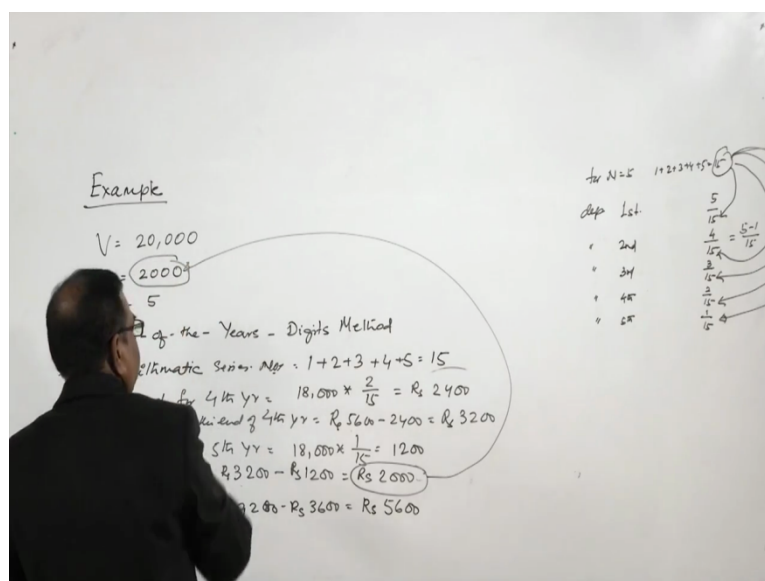 Example
V = 20,000
= 2000
5
of-the-Years-Digits Method
ithmatic Series. Nos = 1+2+3+4+5 = 15
for 4th yr = 18,000 * 2/15 = Rs 2400
end of 4th yr = Rs 5600 - 2400 = Rs 3200
5th yr = 18,000 * 1/15 = 1200
Rs 3200 - Rs 1200 = Rs 2000
7200 - Rs 3600 = Rs 5600
for N=5 1+2+3+4+5=15
dep 1st. 5/15
" 2nd 4/15 = 5-1/15
" 3rd 3/15
" 4th 2/15
" 5th 1/15